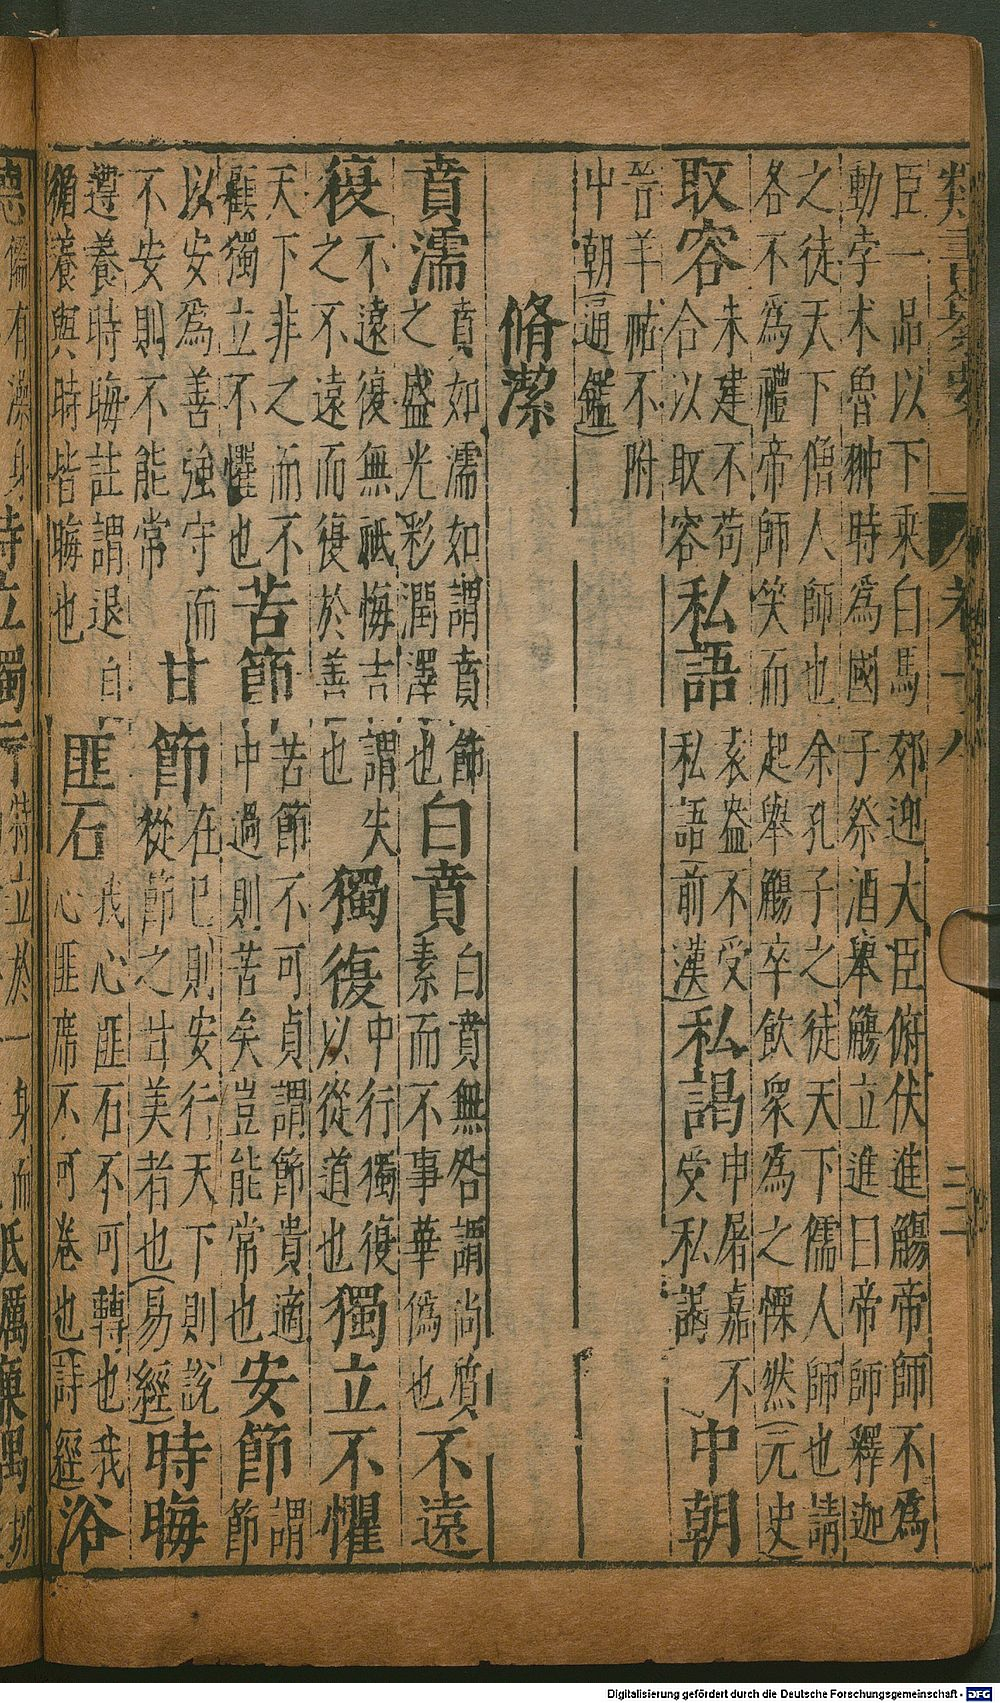 臣一品以下乘白馬郊迎大臣俯伏進觴帝師不爲
動孛术魯翀時爲國子祭酒舉觴立進曰帝師釋迦
之徒天下僧人師也余孔子之徒天下儒人師也請
各不爲禮帝師笑而起舉觴卒飲衆爲之慄然(元史)
取容
朱建不苟
合以取容
私語
袁盎不受
私語(前漢)
私謁
申屠嘉不
受私謁
中朝
晉羊祜不附
中朝(通鑑)
脩潔
賁濡
賁如濡如謂賁飾
之盛光彩潤澤也
白賁
白賁無咎謂尚質
素而不事華僞也
不遠
復
不遠復無祗悔吉謂失
之不遠而復於善也
獨復
中行獨復
以從道也
獨立不懼
天下非之而不
顧獨立不懼也
苦節
苦節不可貞謂節貴適
中過則苦矣豈能常也
安節
謂節
以安爲善強守而
不安則不能常
甘節
在已則安行天下則說
從節之甘美者也(易經)
時晦
遵養時晦註謂退自
循養與時皆晦也
匪石
我心匪石不可轉也我
心匪席不可卷也(詩經)
浴
卷十八
Digitalisierung gefördert durch die Deutsche Forschungsgemeinschaft - DFG